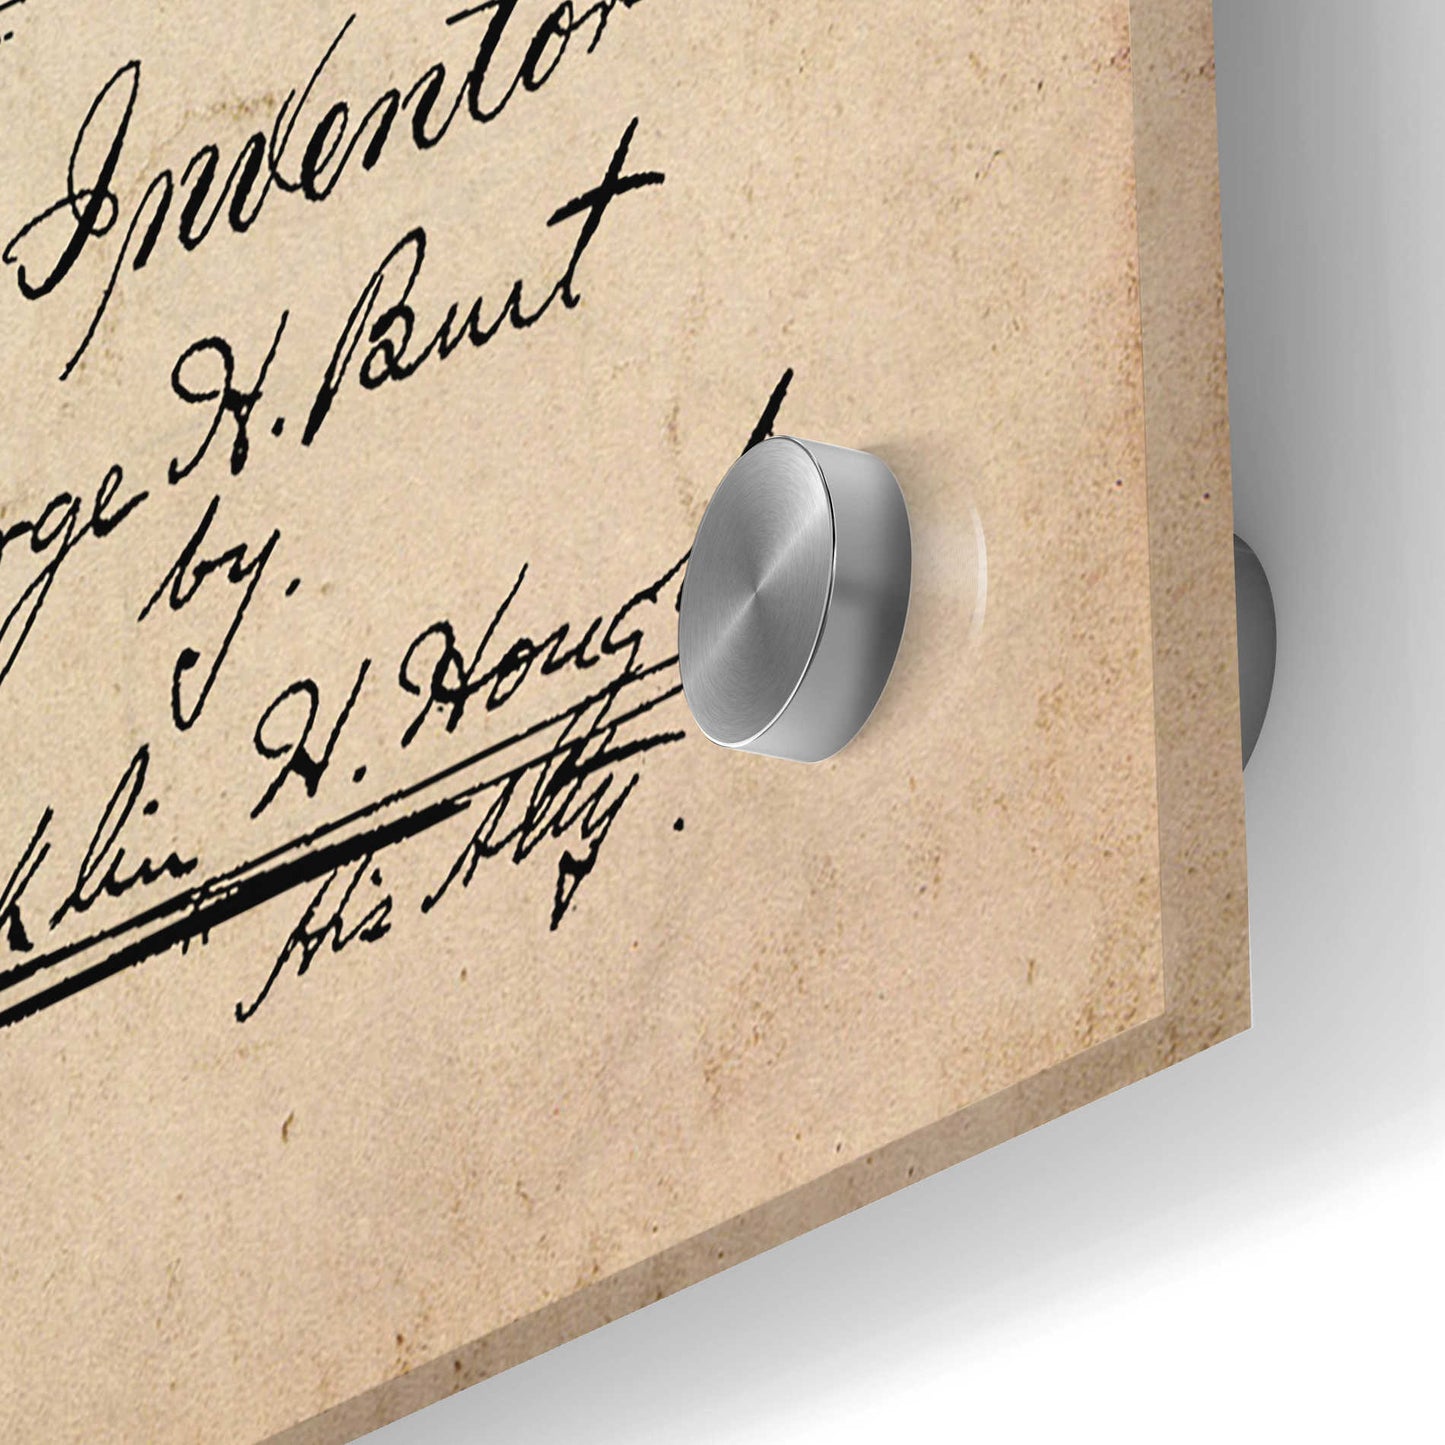 Inventor
George H. Burt
by.
Franklin H. Hough
His Atty.